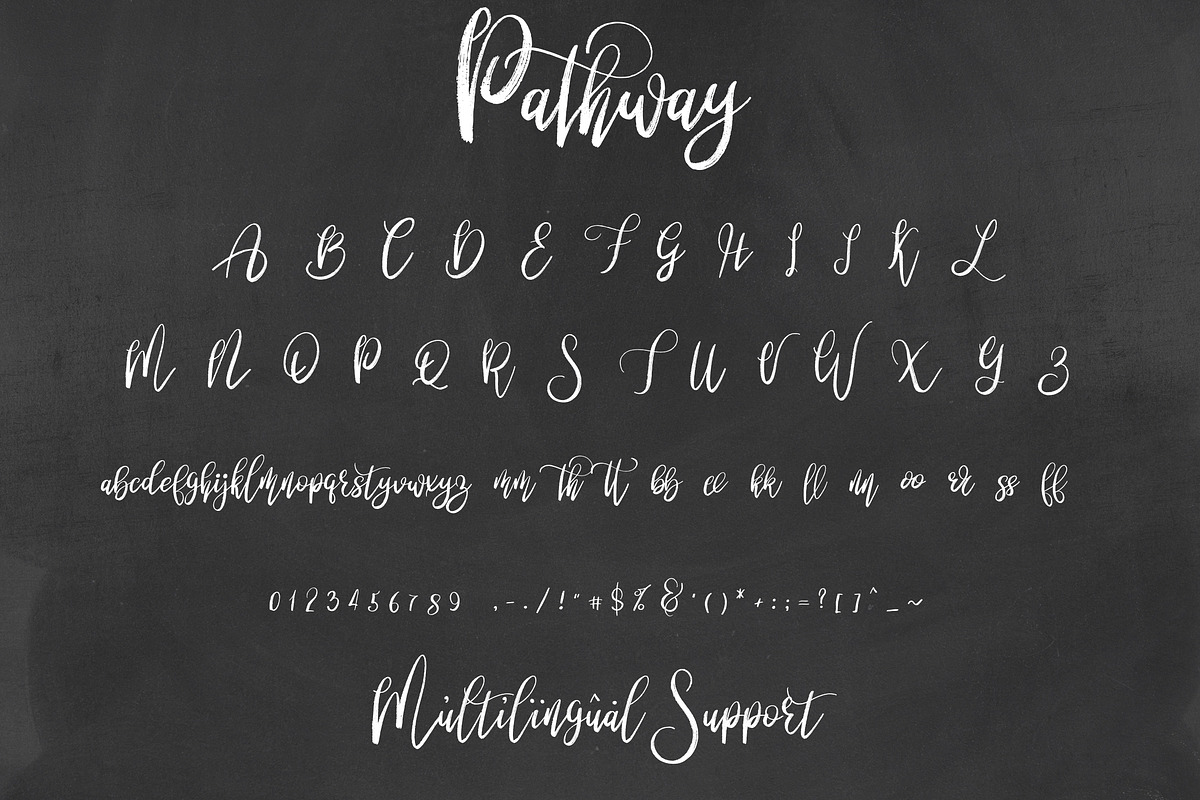 Pathway
A B C D E F G H I J K L
M N O P Q R S T U V W X Y Z
abcdefghijklmnopqrstuvwxyz mm th tt bb ee kk ll nn oo rr ss ff
0123456789 ,-./!"#$%&'()*+:;=?[]^_~
Múltílïngûäl Support